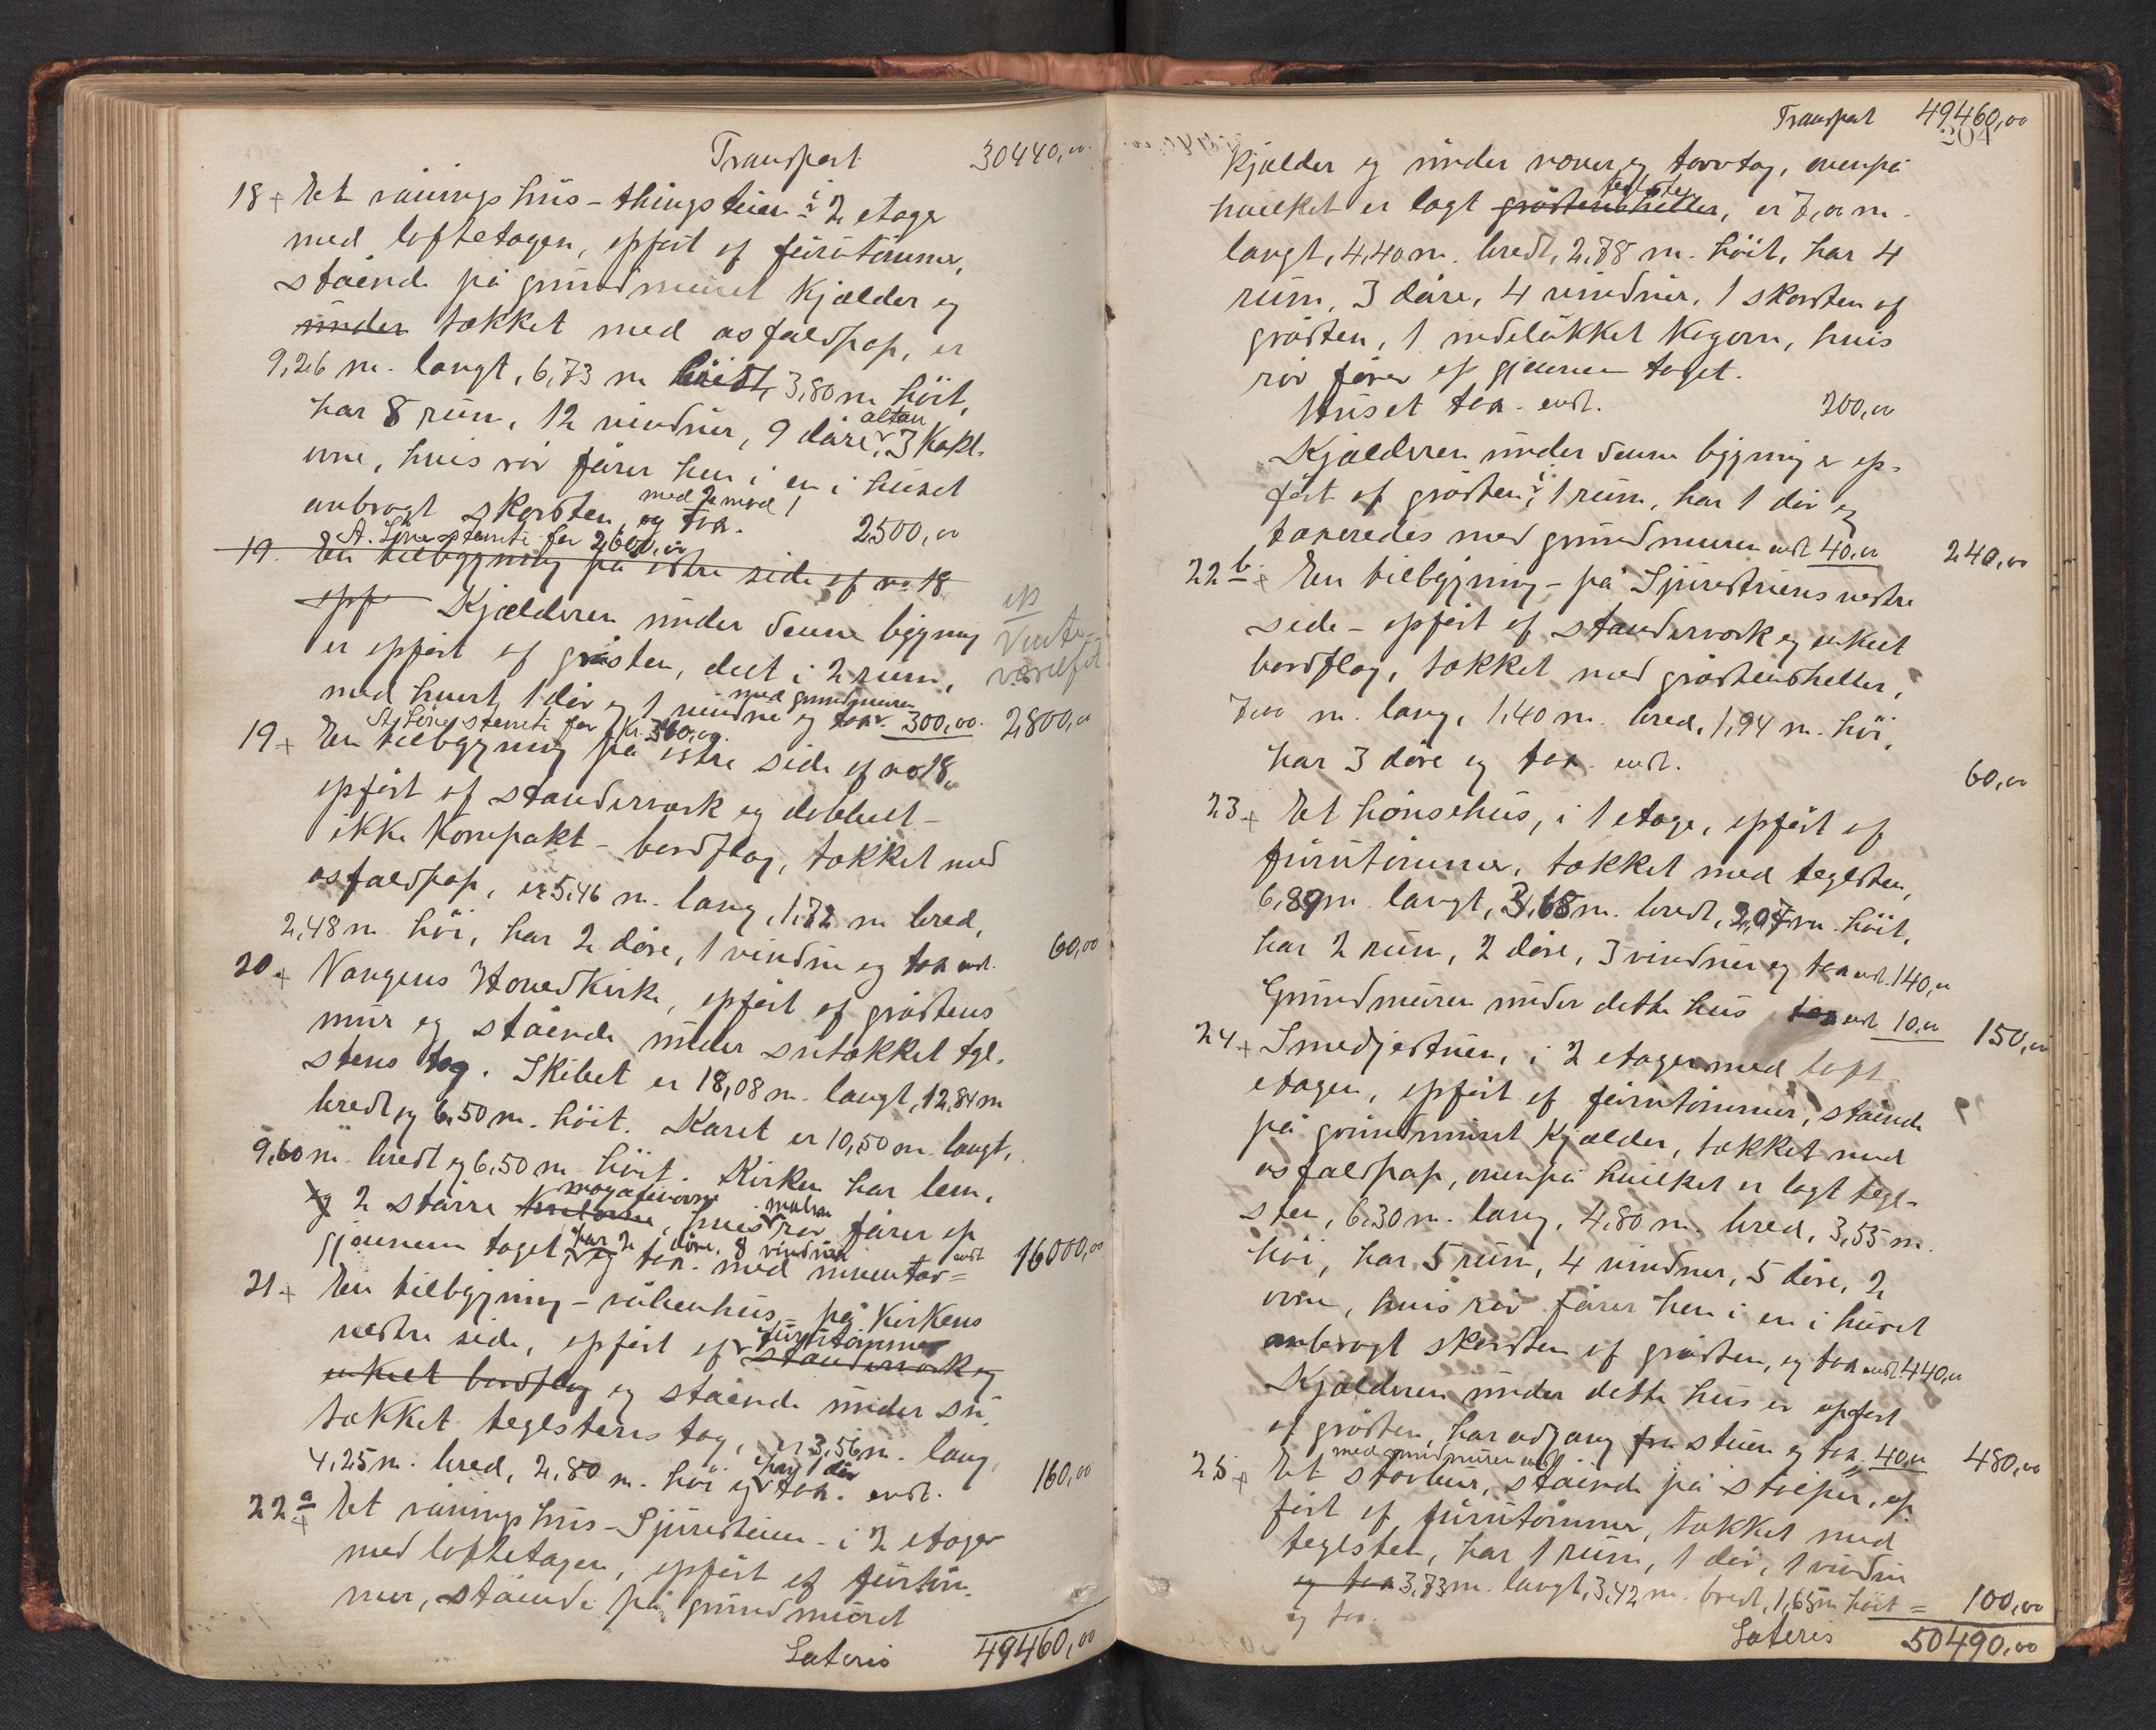 Transport 30440,00
18 + Et våningshus - thingstuen - i 2 etager
med loftetagen, opført af furutømmer,
stående på grundmuret Kjælder og
under tækket med asfaldpap, er
9,26 m. langt, 6,73 m bredt, 3,80 m høit,
altan
har 8 rum, 12 vinduer, 9 døre, 3 Kakl.
ovne, hvis rør fører hen i en i huset
med 2 mod
anbragt skorsten, og tax. 2500,00
A. Sörensterute for 2,600,00
19. En tilbygning på østre side af no 18
opf Kjælderen under denne bygning
er opført af gråsten, delt i 2 rum,
med grundmuren
med hvert 1 dør og 1 vindue og tax. 300,00. 2,800,00
for Kr. 300,00.
19 + En tilbygning på østre side af no 18,
opført af standerværk og dobbelt -
ikke Kompakt - bordflag, tækket med
asfaldpap, er 5,46 m. lang, 1,72 m bred,
2,48 m. høi, har 2 døre, 1 vindu og tax ant. 60,00
20. + Vangens Hovedkirke, opført af gråstens
mur og stående under sutækket tgl.
stens tag. Skibet er 18,08 m. langt, 12,84 m
bredt og 6,50 m. høit. Koret er 10,50 m. langt,
9,60 m. bredt og 6,50 m høit. Kirken har lem,
magasinovne
og 2 større , hvis rør fører op
har 2 døre, 8 vinduer
gjennem taget og tax. med inventar = 16000,00
21 + En tilbygning - våbenhus, på Kirkens
furutømmer
vestre side, opført af standerværk og
enkelt bordflag og stående under su.
tækket teglstens tag, er 3,56 m. lang,
har 1 dør
4,25 m. bred, 2,80 m. høi og tax. ant. 160,00
22 a + Et våningshus - Sjurstuen - i 2 etager
med loftetagen, opført af furtøm.
mer, stående på grundmuret
Lateris 49460,00
Transport 49460,00
204
Kjælder og under næver og torvtag, ovenpå
teglsten
hvilket er lagt gråstensheller, er 7,00 m.
langt, 4,40 m. bredt, 2,78 m. høit, har 4
rum, 3 døre, 4 vinduer, 1 skorsten af
gråsten, 1 indelukket Kogovn, hvis
rør fører op gjennem taget.
Huset tax. ant. 200,00
Kjælderen under denne bygning er op-
ført af gråsten i 1 rum, har 1 dør og
taxeredes med grundmuren ant 40,00 240,00
22 b. + En tilbygning - på Sjurstuens vestre
side - opført af standerværk og enkelt
bordflag, tækket med gråstensheller,
7,00 m. lang, 1,40 m. bred, 1,94 m. høi,
har 3 døre og tax. ant. 60,00
23 + Et hønsehus, i 1 etage, opført af
furutømmer, tækket med teglsten,
6,89 m. langt, 3,68 m. bredt, 2,07 m. høit,
har 2 rum, 2 døre, 3 vinduer og tax ant. 140,00
Grundmuren under dette hus tax ant 10,00 150,00
24 + Smedjestuen, i 2 etager med loft-
etagen, opført af furutømmer, stående
på grundmuret Kjælder, tækket med
asfaldpap, ovenpå hvilket er lagt tegl-
sten, 6,30 m. lang, 4,80 m. bred, 3,55 m.
høi, har 5 rum, 4 vinduer, 5 døre, 2
ovne, hvis rør fører hen i en i huset
anbragt skorsten af gråsten, og tax ant. 440,00
Kjælderen under dette hus er opført
af gråsten, har adgang fra stuen og tax. 40,00 480,00
med grundmuren ant
25 + Et stavbur, stående på stolper, op
ført af furutømmer, tækket med
teglsten, har 1 rum, 1 dør, 1 vindu
og tax 3,73 m. langt, 3,42 m. bredt, 1,65 m høit = 100,00
og tax.
Lateris 50490,00